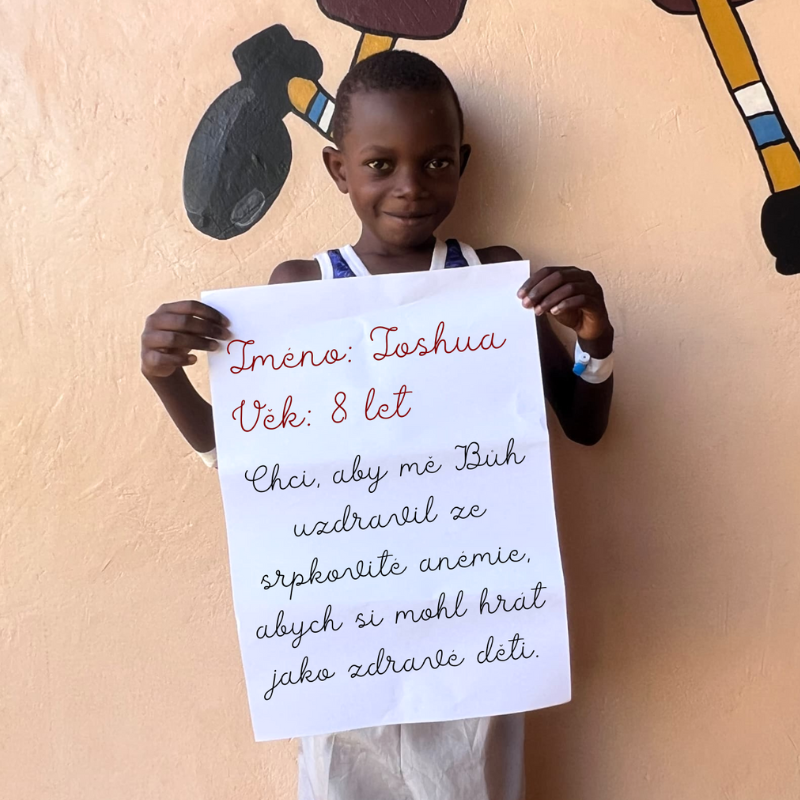 Jméno: Joshua
Věk: 8 let
Chci, aby mě Bůh
uzdravil ze
srpkovité anémie,
abych si mohl hrát
jako zdravé děti.